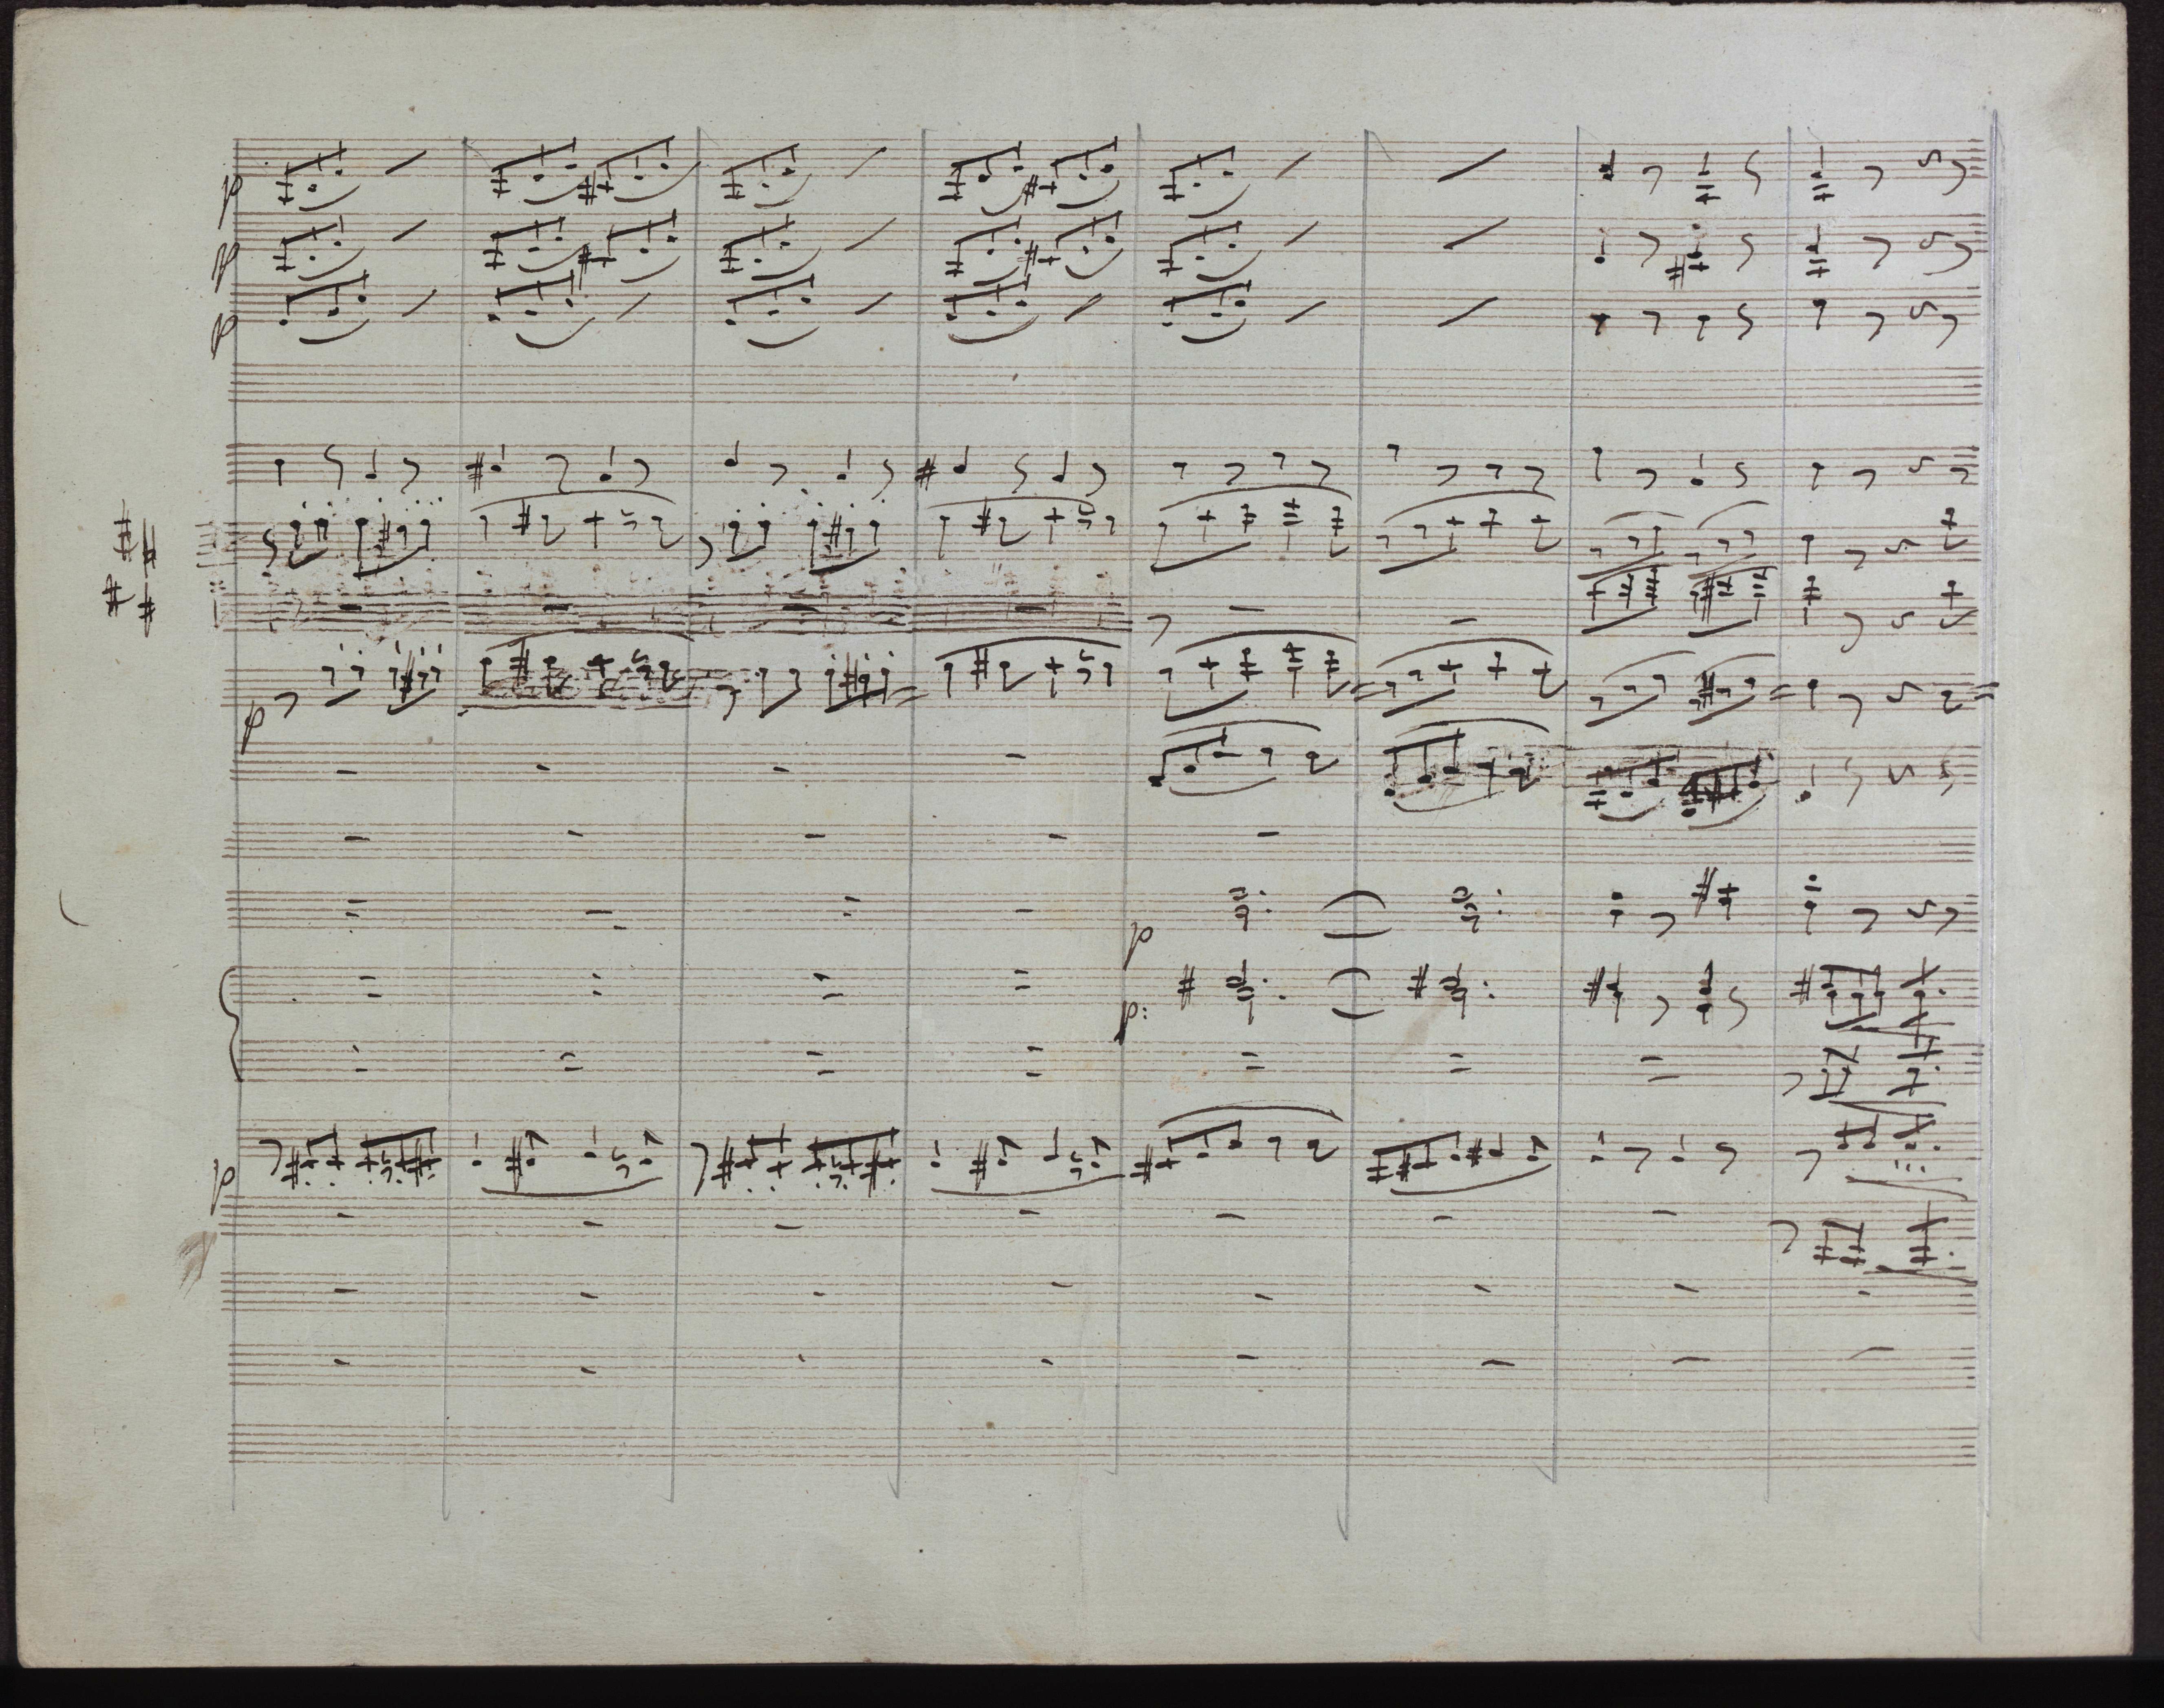 p
p
p
p
p
p:
p